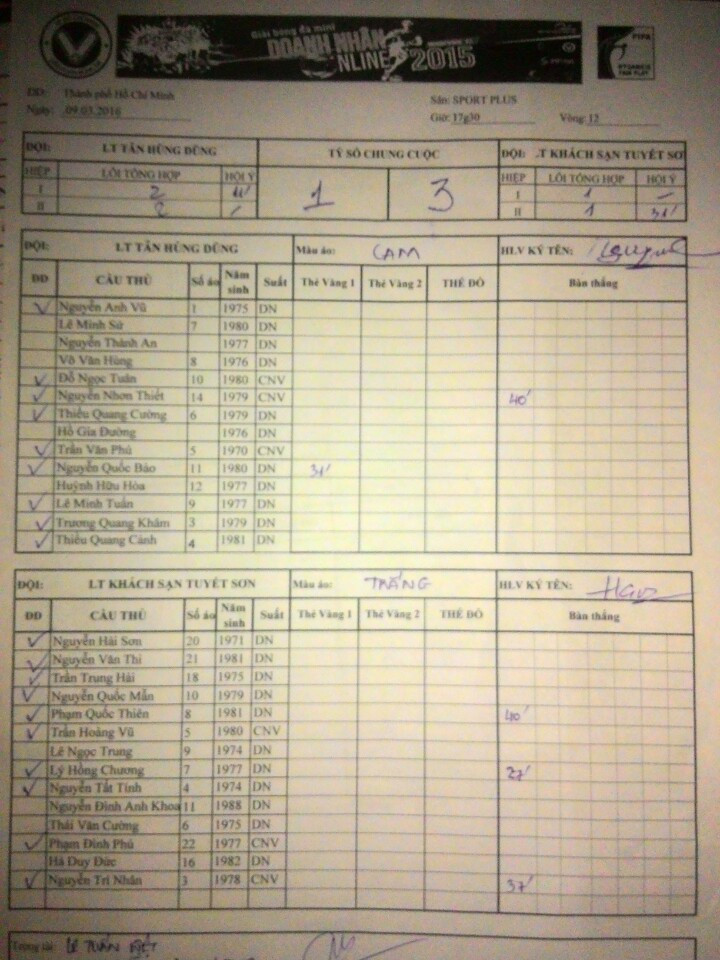 Giải bóng đá mini
DOANH NHÂN
NLINE 2015
FIFA
ĐĐ: Thành phố Hồ Chí Minh
Ngày: 09.03.2016
Sân: SPORT PLUS
Giờ: 17g30 Vòng: 12
ĐỘI: LT TÂN HÙNG DŨNG TỶ SỐ CHUNG CUỘC ĐỘI: .T KHÁCH SẠN TUYẾT SƠ
HIỆP LỖI TỔNG HỢP HỘI Ý 1 3 HIỆP LỖI TỔNG HỢP HỘI Ý
I 2 I 1 -
II 2 - II 1 31'
ĐỘI: LT TÂN HÙNG DŨNG Màu áo: CAM HLV KÝ TÊN:
ĐD CẦU THỦ Số áo Năm sinh Suất Thẻ Vàng 1 Thẻ Vàng 2 THẺ ĐỎ Bàn thắng
Nguyễn Anh Vũ 1 1975 DN
Lê Minh Sử 7 1980 DN
Nguyễn Thành An 1977 DN
Võ Văn Hùng 8 1976 DN
Đỗ Ngọc Tuấn 10 1980 CNV
Nguyễn Nhơn Thiết 14 1979 CNV 40'
Thiều Quang Cường 6 1979 DN
Hồ Gia Đường 1976 DN
Trần Văn Phú 5 1970 CNV
Nguyễn Quốc Bảo 11 1980 DN 31'
Huỳnh Hữu Hòa 12 1977 DN
Lê Minh Tuấn 9 1977 DN
Trương Quang Khâm 3 1979 DN
Thiều Quang Cảnh 4 1981 DN
ĐỘI: LT KHÁCH SẠN TUYẾT SƠN Màu áo: TRẮNG HLV KÝ TÊN:
ĐD CẦU THỦ Số áo Năm sinh Suất Thẻ Vàng 1 Thẻ Vàng 2 THẺ ĐỎ Bàn thắng
Nguyễn Hải Sơn 20 1971 DN
Nguyễn Văn Thi 21 1981 DN
Trần Trung Hải 18 1975 DN
Nguyễn Quốc Mẫn 10 1979 DN
Phạm Quốc Thiên 8 1981 DN 40'
Trần Hoàng Vũ 5 1980 CNV
Lê Ngọc Trung 9 1974 DN
Lý Hồng Chương 7 1977 DN 27'
Nguyễn Tất Tính 4 1974 DN
Nguyễn Đình Anh Khoa 11 1988 DN
Thái Văn Cường 6 1975 DN
Phạm Đình Phú 22 1977 CNV
Hà Duy Đức 16 1982 DN
Nguyễn Trí Nhân 3 1978 CNV 37'
Trọng tài: LÊ TUẤN